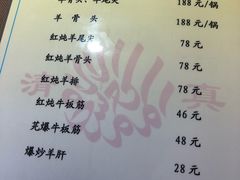 羊骨头、羊尾尖 188元/锅
羊骨头 188元/锅
红炖羊尾尖 78元
红炖羊骨头 78元
红炖羊排 78元
红炖牛板筋 46元
芫爆牛板筋 48元
爆炒羊肝 28元
清 真